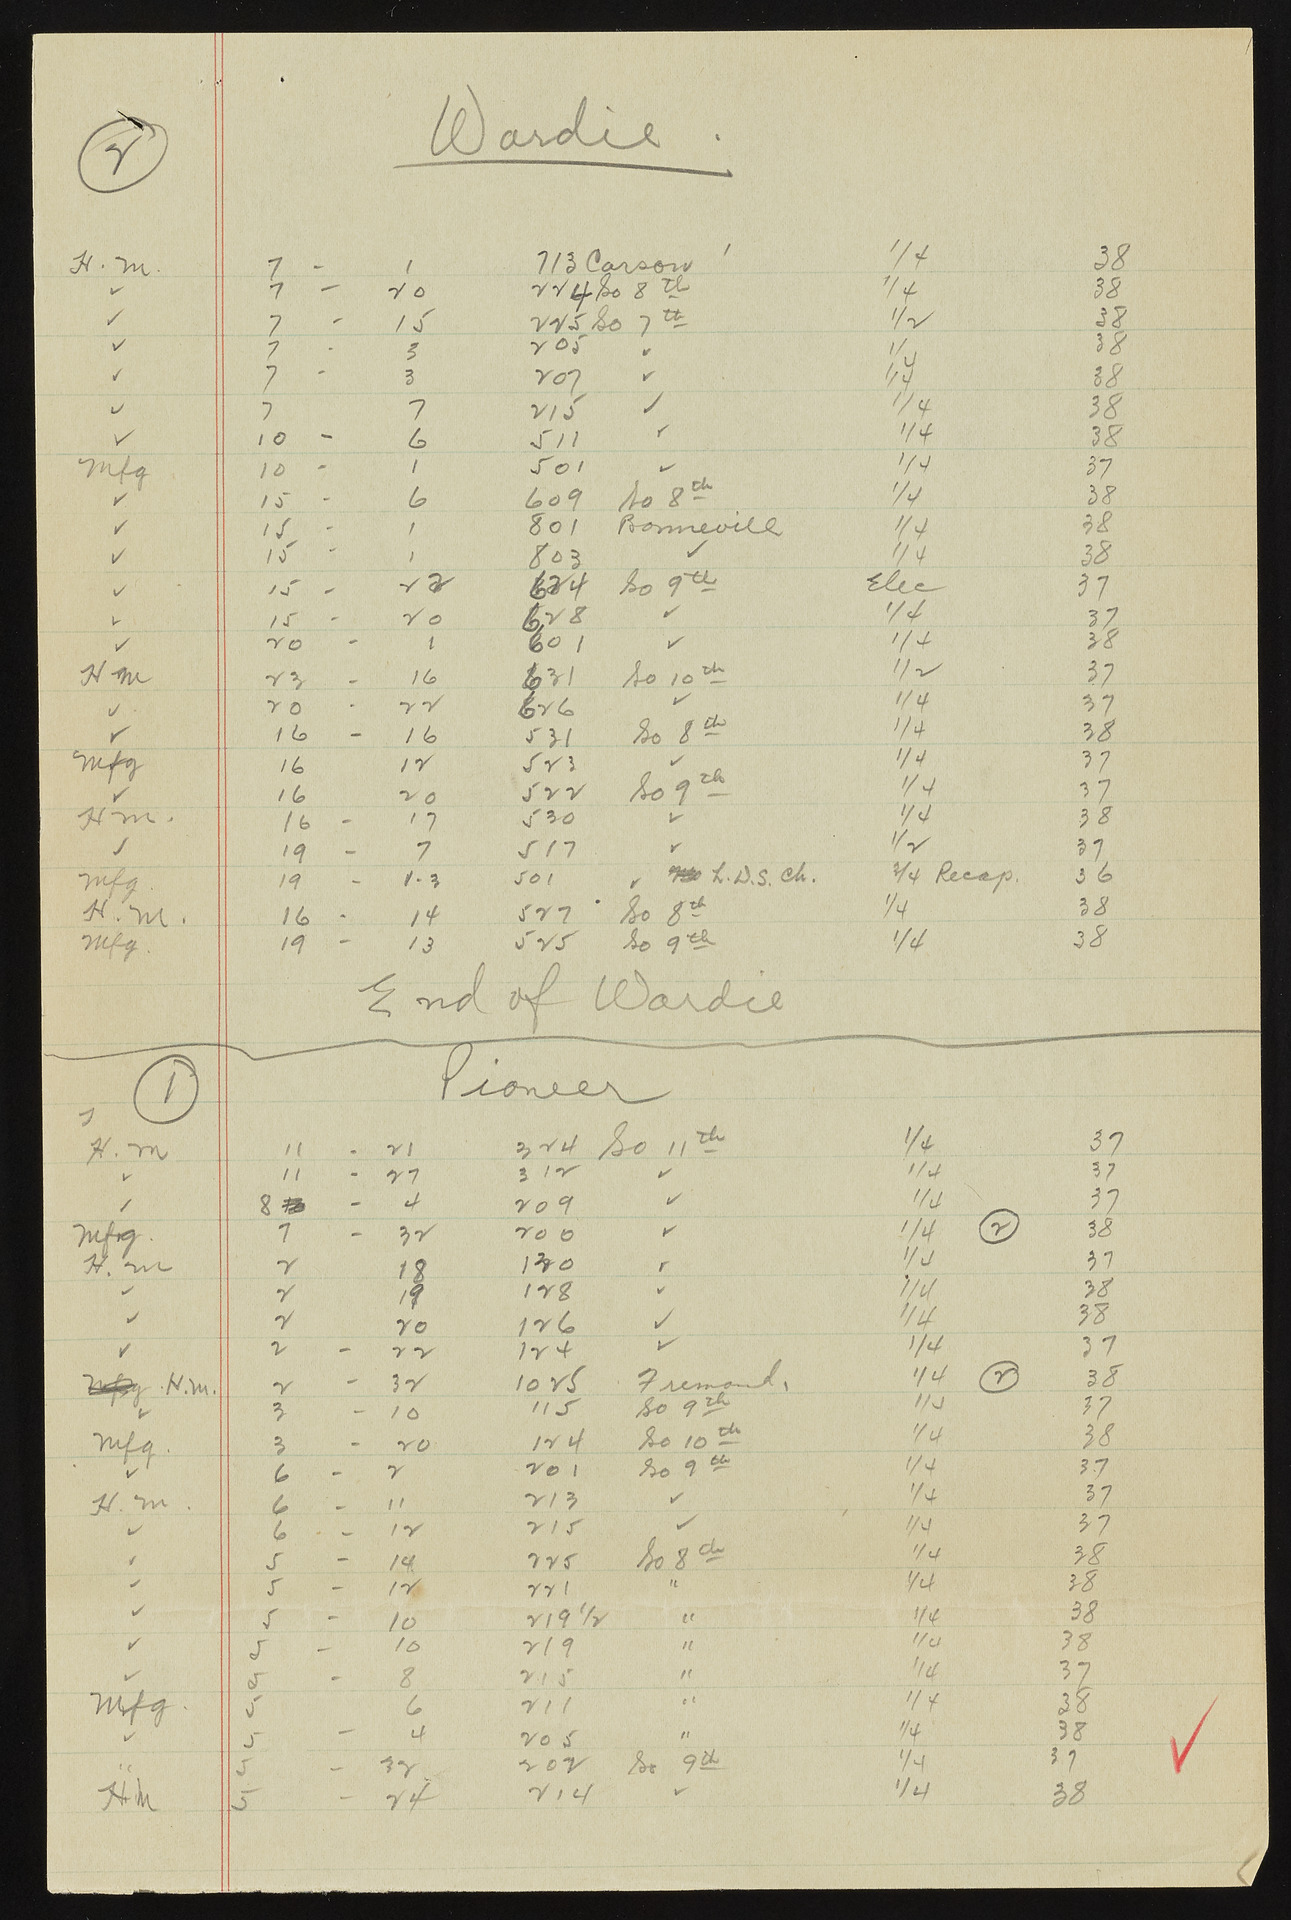 2
Wardie.
H.M. 7 - 1 713 Carson 1/4 38
✓ 7 - 20 224 So 8th 1/4 38
✓ 7 - 15 225 So 7th 1/2 38
✓ 7 - 3 205 ✓ 1/4 38
✓ 7 - 3 207 ✓ 1/4 38
✓ 7 7 215 ✓ 1/4 38
✓ 10 - 6 511 ✓ 1/4 38
Mfg 10 - 1 501 ✓ 1/4 37
✓ 15 - 6 609 So 8th 1/4 38
✓ 15 - 1 801 Bonneville 1/4 38
✓ 15 - 1 803 ✓ 1/4 38
✓ 15 - 22 624 So 9th Elec 37
✓ 15 - 20 628 ✓ 1/4 37
✓ 20 - 1 601 ✓ 1/4 38
HM 23 - 16 631 So 10th 1/2 37
✓ 20 - 22 626 ✓ 1/4 37
✓ 16 - 16 531 So 8th 1/4 38
Mfg 16 12 523 ✓ 1/4 37
✓ 16 20 522 So 9th 1/4 37
HM. 16 - 17 530 ✓ 1/4 38
✓ 19 - 7 517 ✓ 1/2 37
Mfg. 19 - 1-3 501 ✓ L.D.S. Ch. 3/4 Recap. 36
H.M. 16 - 14 527 So 8th 1/4 38
Mfg. 19 - 13 525 So 9th 1/4 38
End of Wardie
1
Pioneer
H.M 11 - 21 324 So 11th 1/4 37
✓ 11 - 27 312 ✓ 1/4 37
✓ 8 - 4 209 ✓ 1/4 37
Mfg. 7 - 32 200 ✓ 1/4 2 38
H.M 2 18 130 ✓ 1/4 37
✓ 2 19 128 ✓ 1/4 38
✓ 2 20 126 ✓ 1/4 38
✓ 2 - 22 124 ✓ 1/4 37
Mfg H.M. 2 - 32 1025 Fremond. 1/4 2 38
✓ 3 - 10 115 So 9th 1/4 37
Mfg. 3 - 20 124 So 10th 1/4 38
✓ 6 - 2 201 So 9th 1/4 37
H.M. 6 - 11 213 ✓ 1/4 37
✓ 6 - 12 215 ✓ 1/4 37
✓ 5 - 14 225 So 8th 1/4 38
✓ 5 - 12 221 " 1/4 38
✓ 5 - 10 219 1/2 " 1/4 38
✓ 5 - 10 219 " 1/4 38
✓ 5 - 8 215 " 1/4 37
Mfg. 5 6 211 " 1/4 38
✓ 5 - 4 205 " 1/4 38
" 5 - 32 202 So 9th 1/4 37
HM 5 - 24 214 ✓ 1/4 38